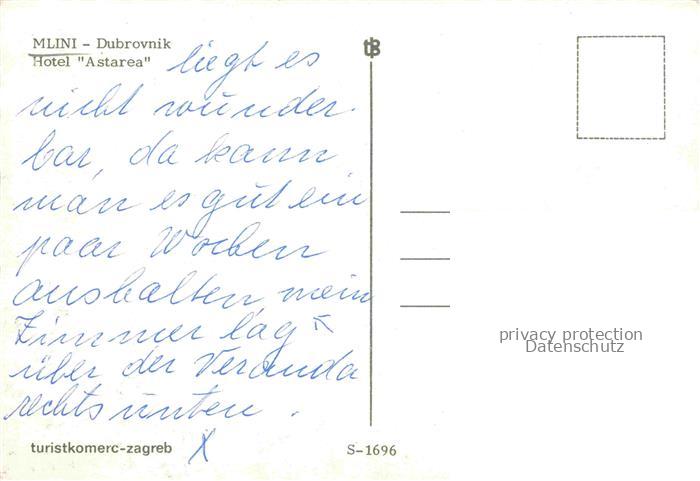 MLINI - Dubrovnik
Hotel "Astarea"
liegt es
nicht wunder-
bar, da kann
man es gut ein
paar Wochen
aushalten, mein
Zimmer lag
über der Veranda
rechts unten.
turistkomerc-zagreb
X
tB
S-1696
privacy protection
Datenschutz